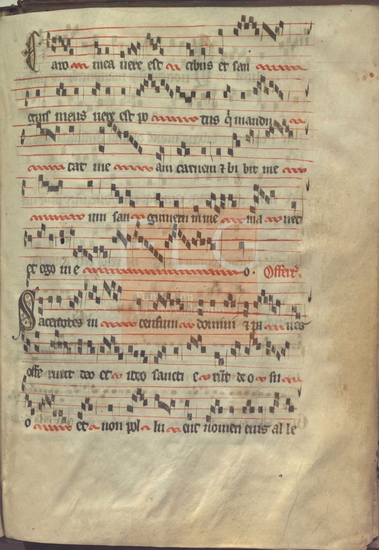 Caro mea vere est cibus et san
guis meus vere est po tus q̄ mandu
cat me am carnem ⁊ bi bit me
um san guinem in me ma net
et ego in e o. Offert̄.
Sacerdotes in censum domini ⁊ pa nes
offe runt deo et ideo sancti e rūt de o su
o et non pol lu ent nomen eius al le